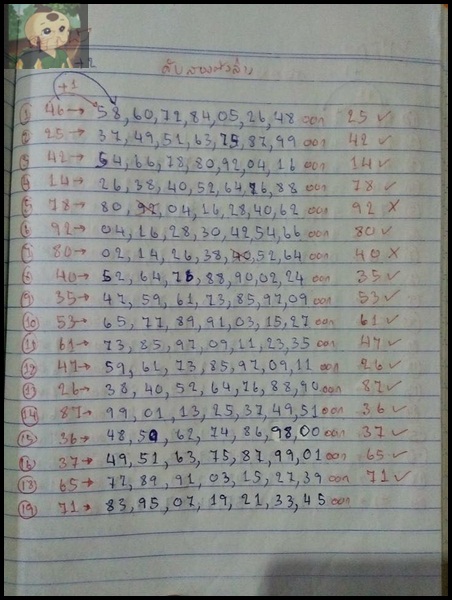 ดับสองตัวล่าง
+1
① 46→ 58,60,72,84,05,26,48 ออก 25 ✓
② 25→ 37,49,51,63,75,87,99 ออก 42 ✓
③ 42→ 54,66,78,80,92,04,16 ออก 14 ✓
④ 14→ 26,38,40,52,64,76,88 ออก 78 ✓
⑤ 78→ 80,92,04,16,28,40,62 ออก 92 ✗
⑥ 92→ 04,16,28,30,42,54,66 ออก 80 ✓
⑦ 80→ 02,14,26,38,40,52,64 ออก 40 ✗
⑧ 40→ 52,64,76,88,90,02,24 ออก 35 ✓
⑨ 35→ 47,59,61,73,85,97,09 ออก 53 ✓
⑩ 53→ 65,77,89,91,03,15,27 ออก 61 ✓
⑪ 61→ 73,85,97,09,11,23,35 ออก 47 ✓
⑫ 47→ 59,61,73,85,97,09,11 ออก 26 ✓
⑬ 26→ 38,40,52,64,76,88,90 ออก 87 ✓
⑭ 87→ 99,01,13,25,37,49,51 ออก 36 ✓
⑮ 36→ 48,50,62,74,86,98,00 ออก 37 ✓
⑯ 37→ 49,51,63,75,87,99,01 ออก 65 ✓
⑱ 65→ 77,89,91,03,15,27,39 ออก 71 ✓
⑲ 71→ 83,95,07,19,21,33,45 ออก